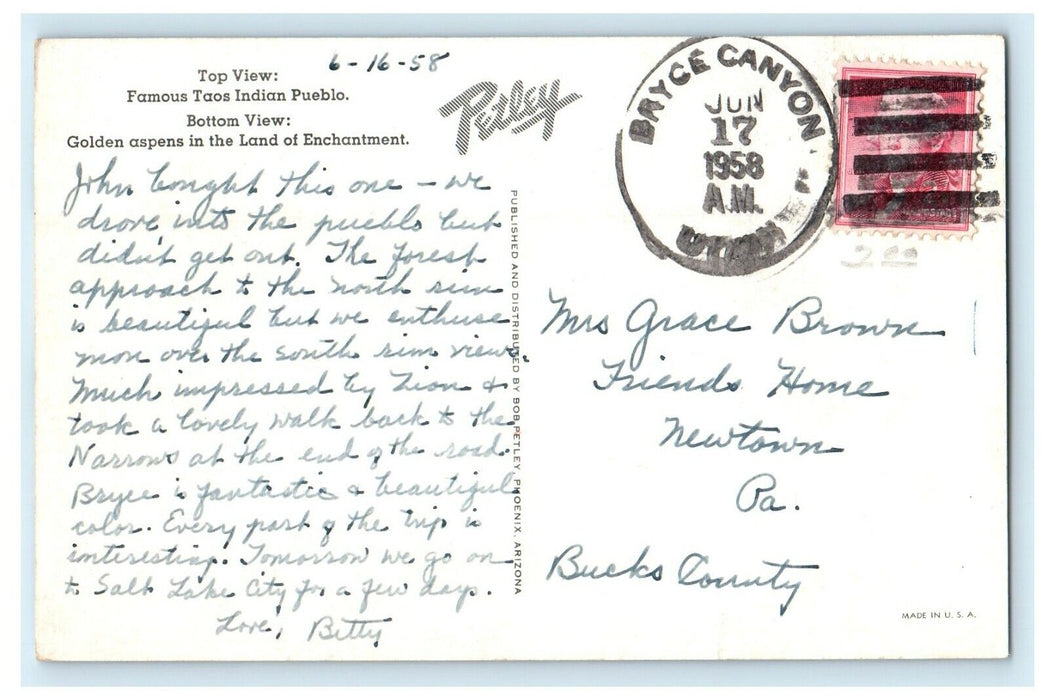 6-16-58
Top View:
Famous Taos Indian Pueblo.
Bottom View:
Golden aspens in the Land of Enchantment.
Petley
BRYCE CANYON
JUN
17
1958
A.M.
UTAH
John bought this one – we
drove into the pueblo but
didn't get out. The forest
approach to the north rim
is beautiful but we enthuse
more over the south rim views.
Much impressed by Zion &
took a lovely walk back to the
Narrows at the end of the road.
Bryce is fantastic & beautiful
color. Every part of the trip is
interesting. Tomorrow we go on
to Salt Lake City for a few days.
Love, Betty
PUBLISHED AND DISTRIBUTED BY BOB PETLEY, PHOENIX, ARIZONA
Mrs Grace Brown
Friends Home
Newtown
Pa.
Bucks County
MADE IN U. S. A.